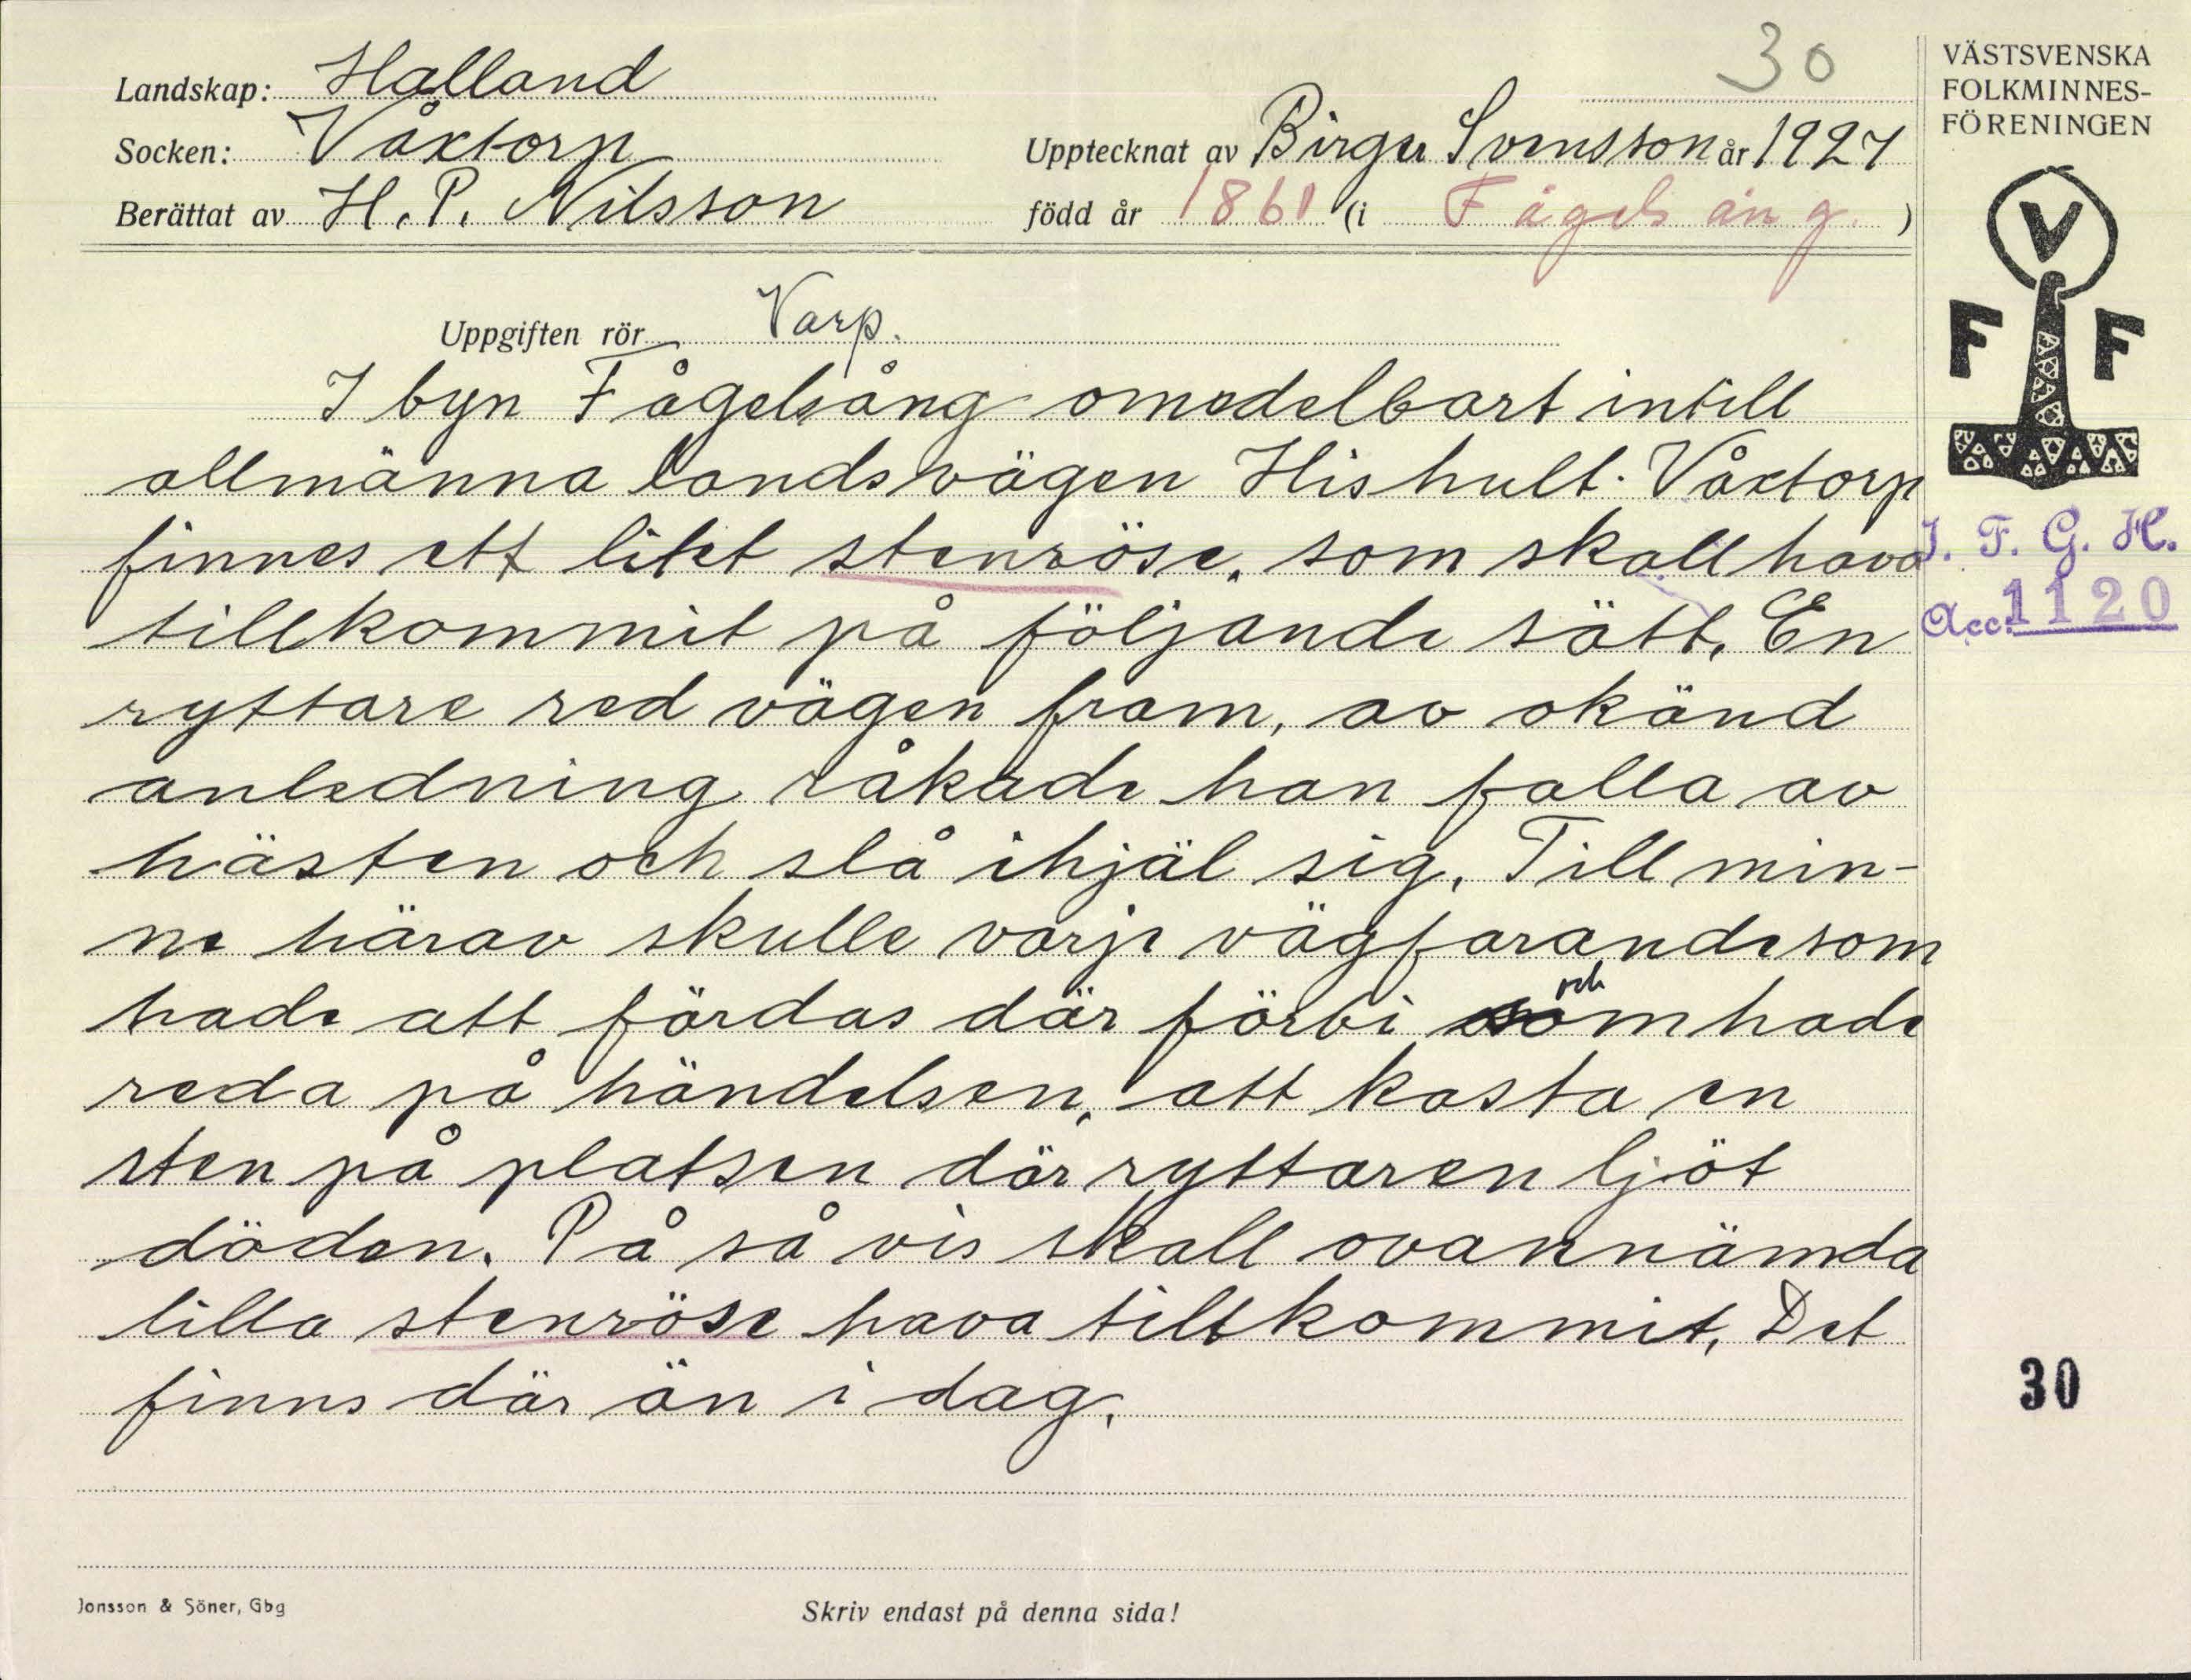 30
VÄSTSVENSKA
FOLKMINNES-
FÖRENINGEN
Landskap: Halland
Socken: Våxtorp
Upptecknat av Birger Svensson år 1927
Berättat av H. P. Nilsson
född år 1861 (i Fågelsång.)
V
F F
Uppgiften rör Varp.
I byn Fågelsång omedelbart intill
allmänna landsvägen Hishult-Våxtorp
finnes ett litet stenröse, som skall hava
I. F. G. H.
Acc. 1120
tillkommit på följande sätt. En
ryttare red vägen fram, av okänd
anledning råkade han falla av
hästen och slå ihjäl sig. Till min-
ne härav skulle varje vägfarande som
hade att färdas där förbi och som hade
reda på händelsen, att kasta en
sten på platsen där ryttaren ljöt
döden. På så vis skall ovannämda
lilla stenröse hava tillkommit. Det
finns där än i dag.
30
Jonsson & Söner, Gbg
Skriv endast på denna sida!